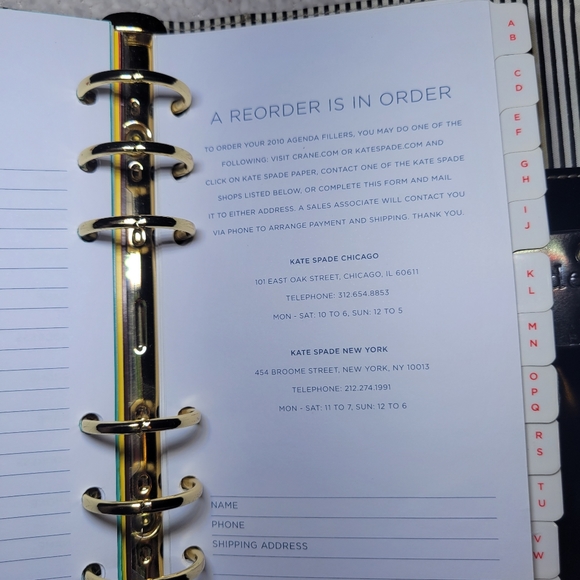 A REORDER IS IN ORDER
TO ORDER YOUR 2010 AGENDA FILLERS, YOU MAY DO ONE OF THE
FOLLOWING: VISIT CRANE.COM OR KATESPADE.COM AND
CLICK ON KATE SPADE PAPER, CONTACT ONE OF THE KATE SPADE
SHOPS LISTED BELOW, OR COMPLETE THIS FORM AND MAIL
IT TO EITHER ADDRESS. A SALES ASSOCIATE WILL CONTACT YOU
VIA PHONE TO ARRANGE PAYMENT AND SHIPPING. THANK YOU.
KATE SPADE CHICAGO
101 EAST OAK STREET, CHICAGO, IL 60611
TELEPHONE: 312.654.8853
MON - SAT: 10 TO 6, SUN: 12 TO 5
KATE SPADE NEW YORK
454 BROOME STREET, NEW YORK, NY 10013
TELEPHONE: 212.274.1991
MON - SAT: 11 TO 7, SUN: 12 TO 6
NAME
PHONE
SHIPPING ADDRESS
A
B
C
D
E
F
G
H
I
J
K
L
M
N
O
P
Q
R
S
T
U
V
W